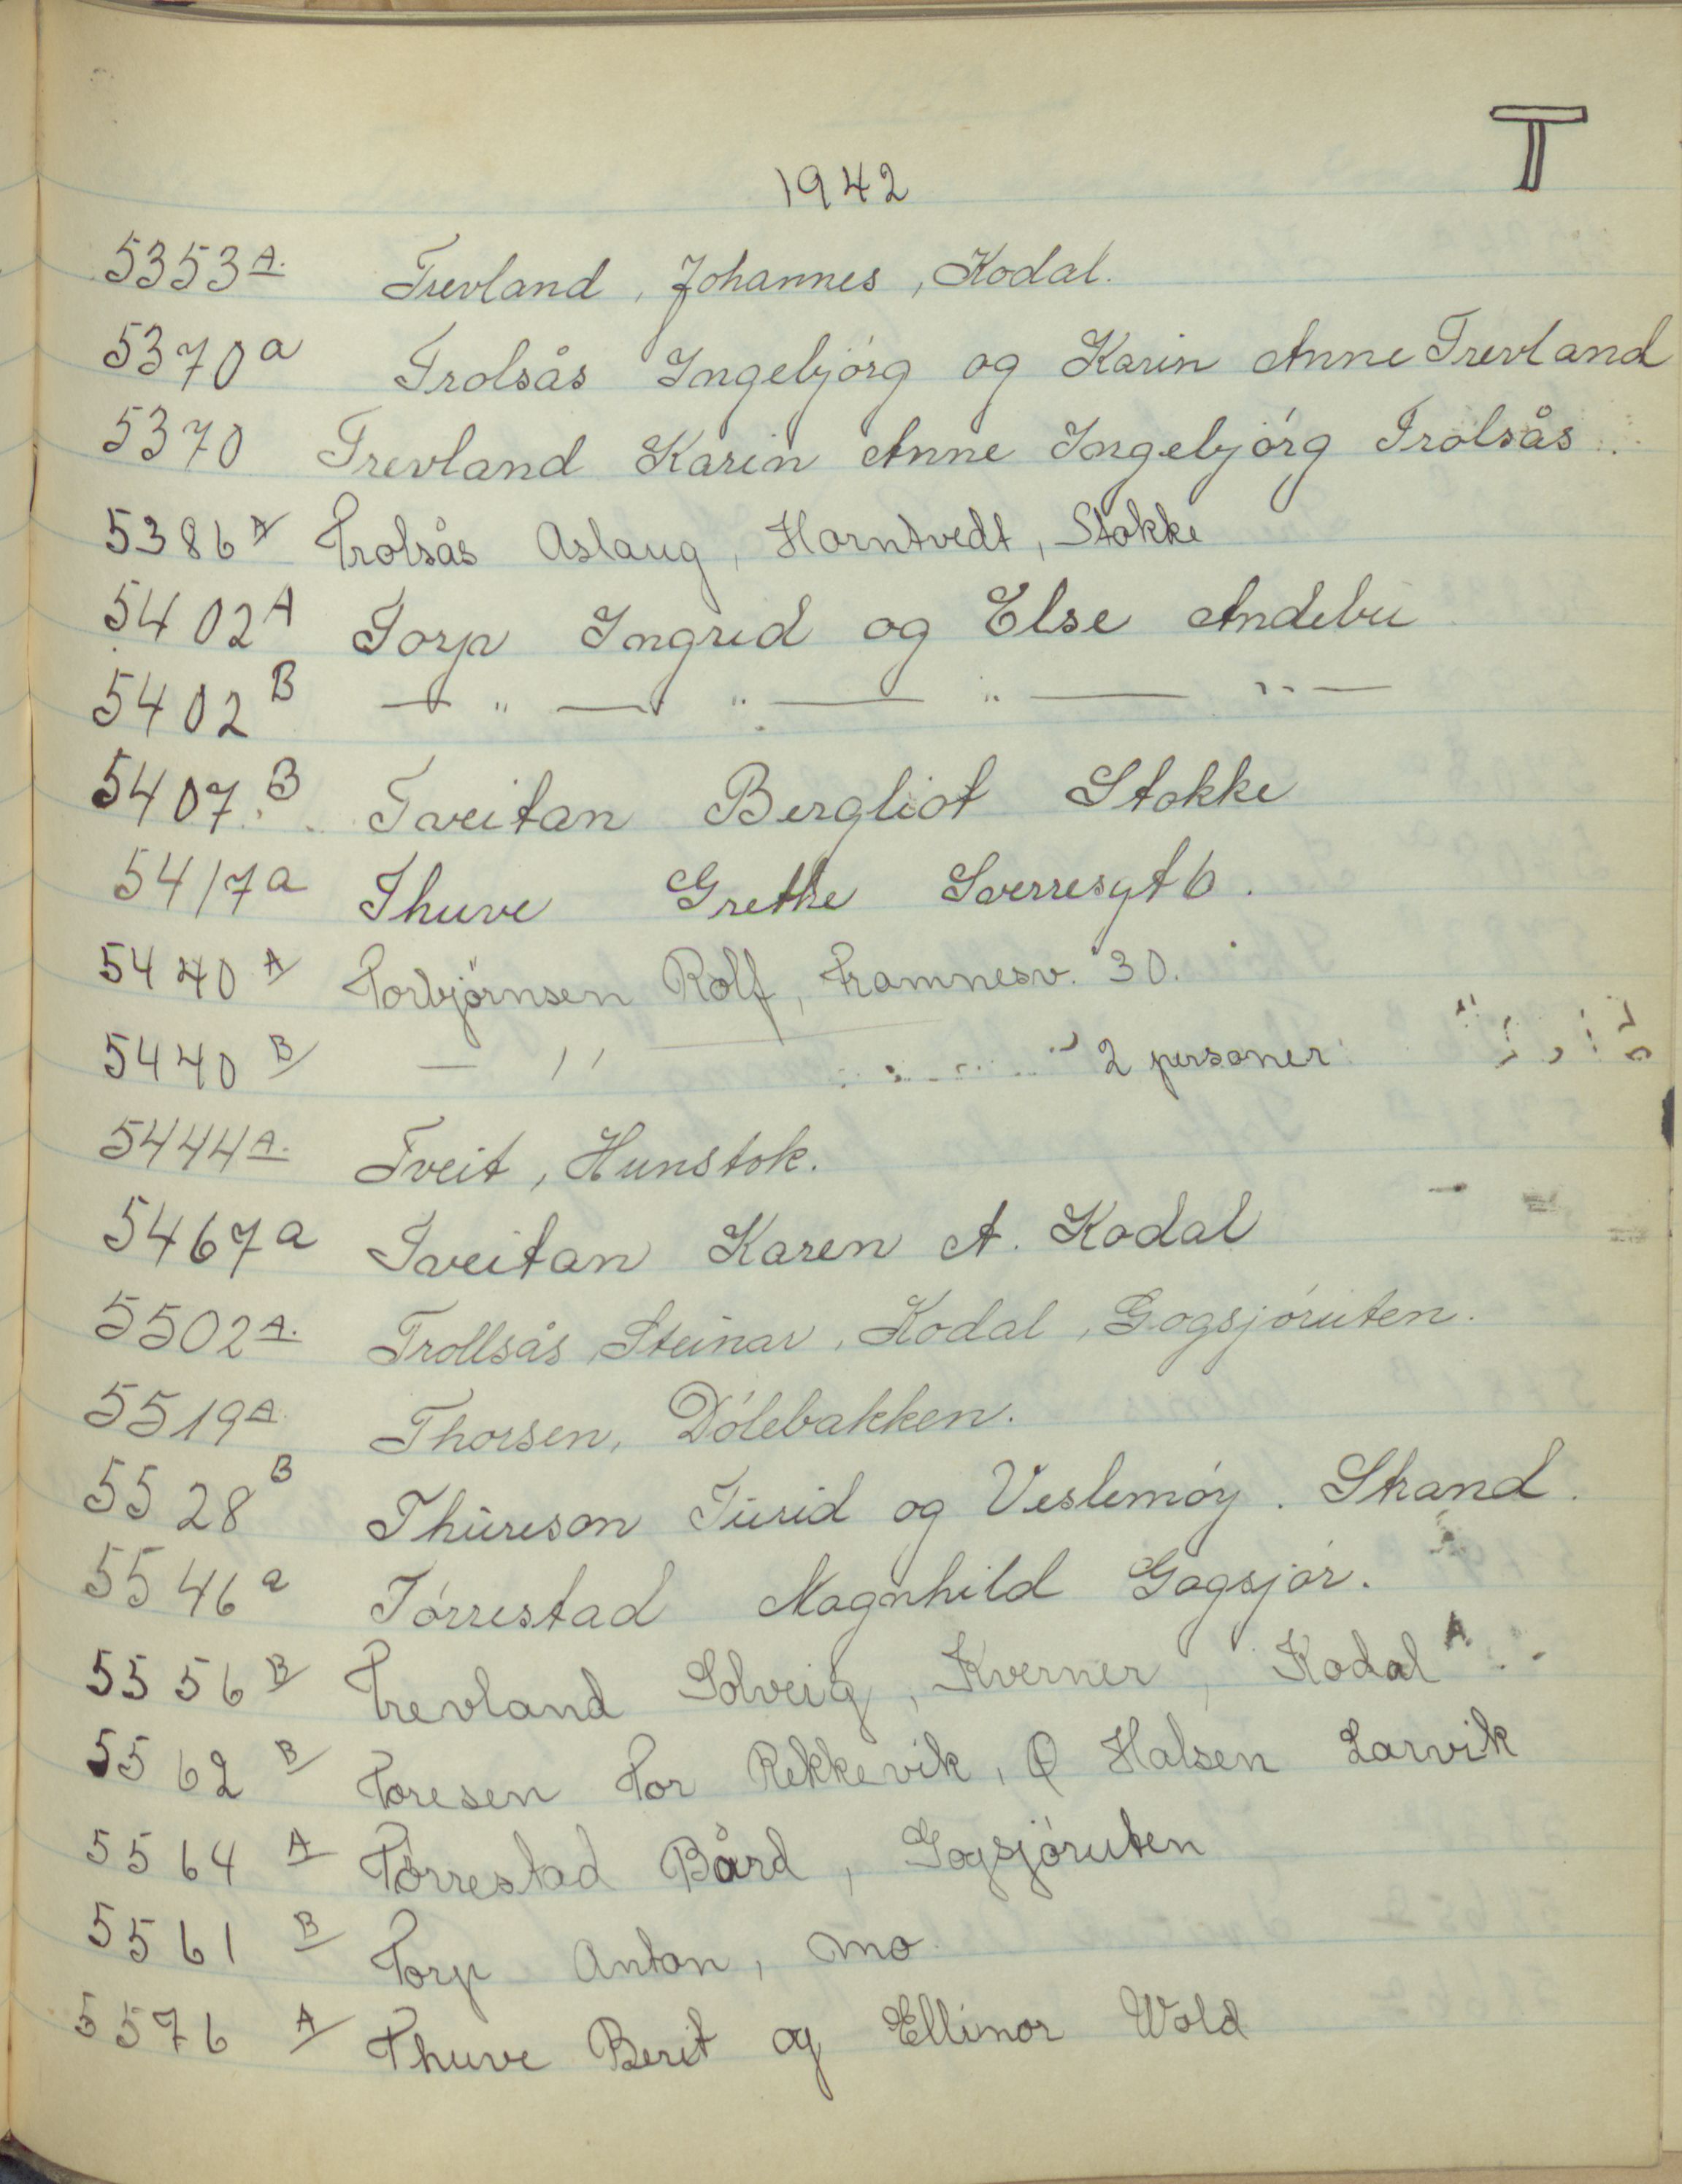 T
1942
5353 A. Trevland, Johannes, Kodal.
5370 a Trolsås Ingebjørg og Karin Anne Trevland
5370 Trevland Karin Anne Ingebjørg Trolsås.
5386 A Trolsås Aslaug, Horntvedt, Stokke
5402 A Torp Ingrid og Else Andebu
5402 B — " — " — " — " —
5407 B Tveitan Bergliot Stokke
5417 a Thuve Grethe Sverresgt 6.
5440 A Torbjørnsen Rolf, Framnesv. 30.
5440 B — " — " 2 personer
5444 A. Tveit, Hunstok.
5467 a Tveitan Karen A. Kodal
5502 A. Trollsås, Steinar, Kodal, Gogsjøruten.
5519 A. Thorsen, Dølebakken.
5528 B Thureson Turid og Veslemøy. Strand.
5546 a Tørrestad Magnhild Gogsjør.
5556 B Trevland Solveig, Kverner, Kodal
5562 B Toresen Tor Rekkevik, Ø Halsen Larvik
5564 A Tørrestad Bård, Gogsjøruten
5561 B Torp Anton, Mo
5576 A Thuve Berit og Ellinor Wold